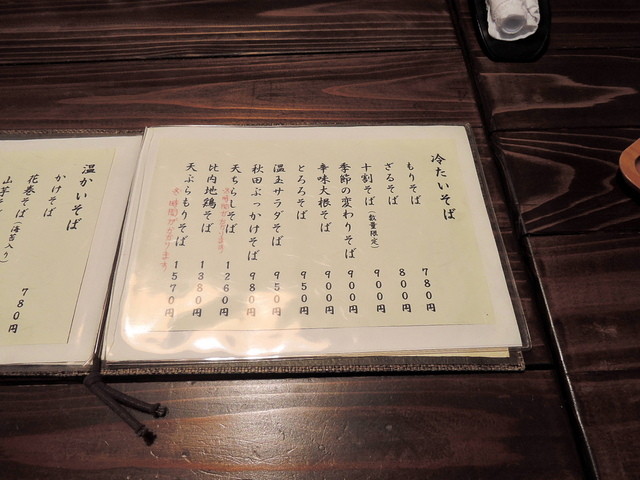 冷たいそば
もりそば 780円
ざるそば 800円
十割そば(数量限定) 900円
季節の変わりそば 900円
辛味大根そば 900円
とろろそば 950円
温玉サラダそば 950円
秋田ぶっかけそば 980円
天ちらしそば 1260円
比内地鶏そば 1380円
天ぷらもりそば 1570円
温かいそば
かけそば
花巻そば(海苔入り) 780円